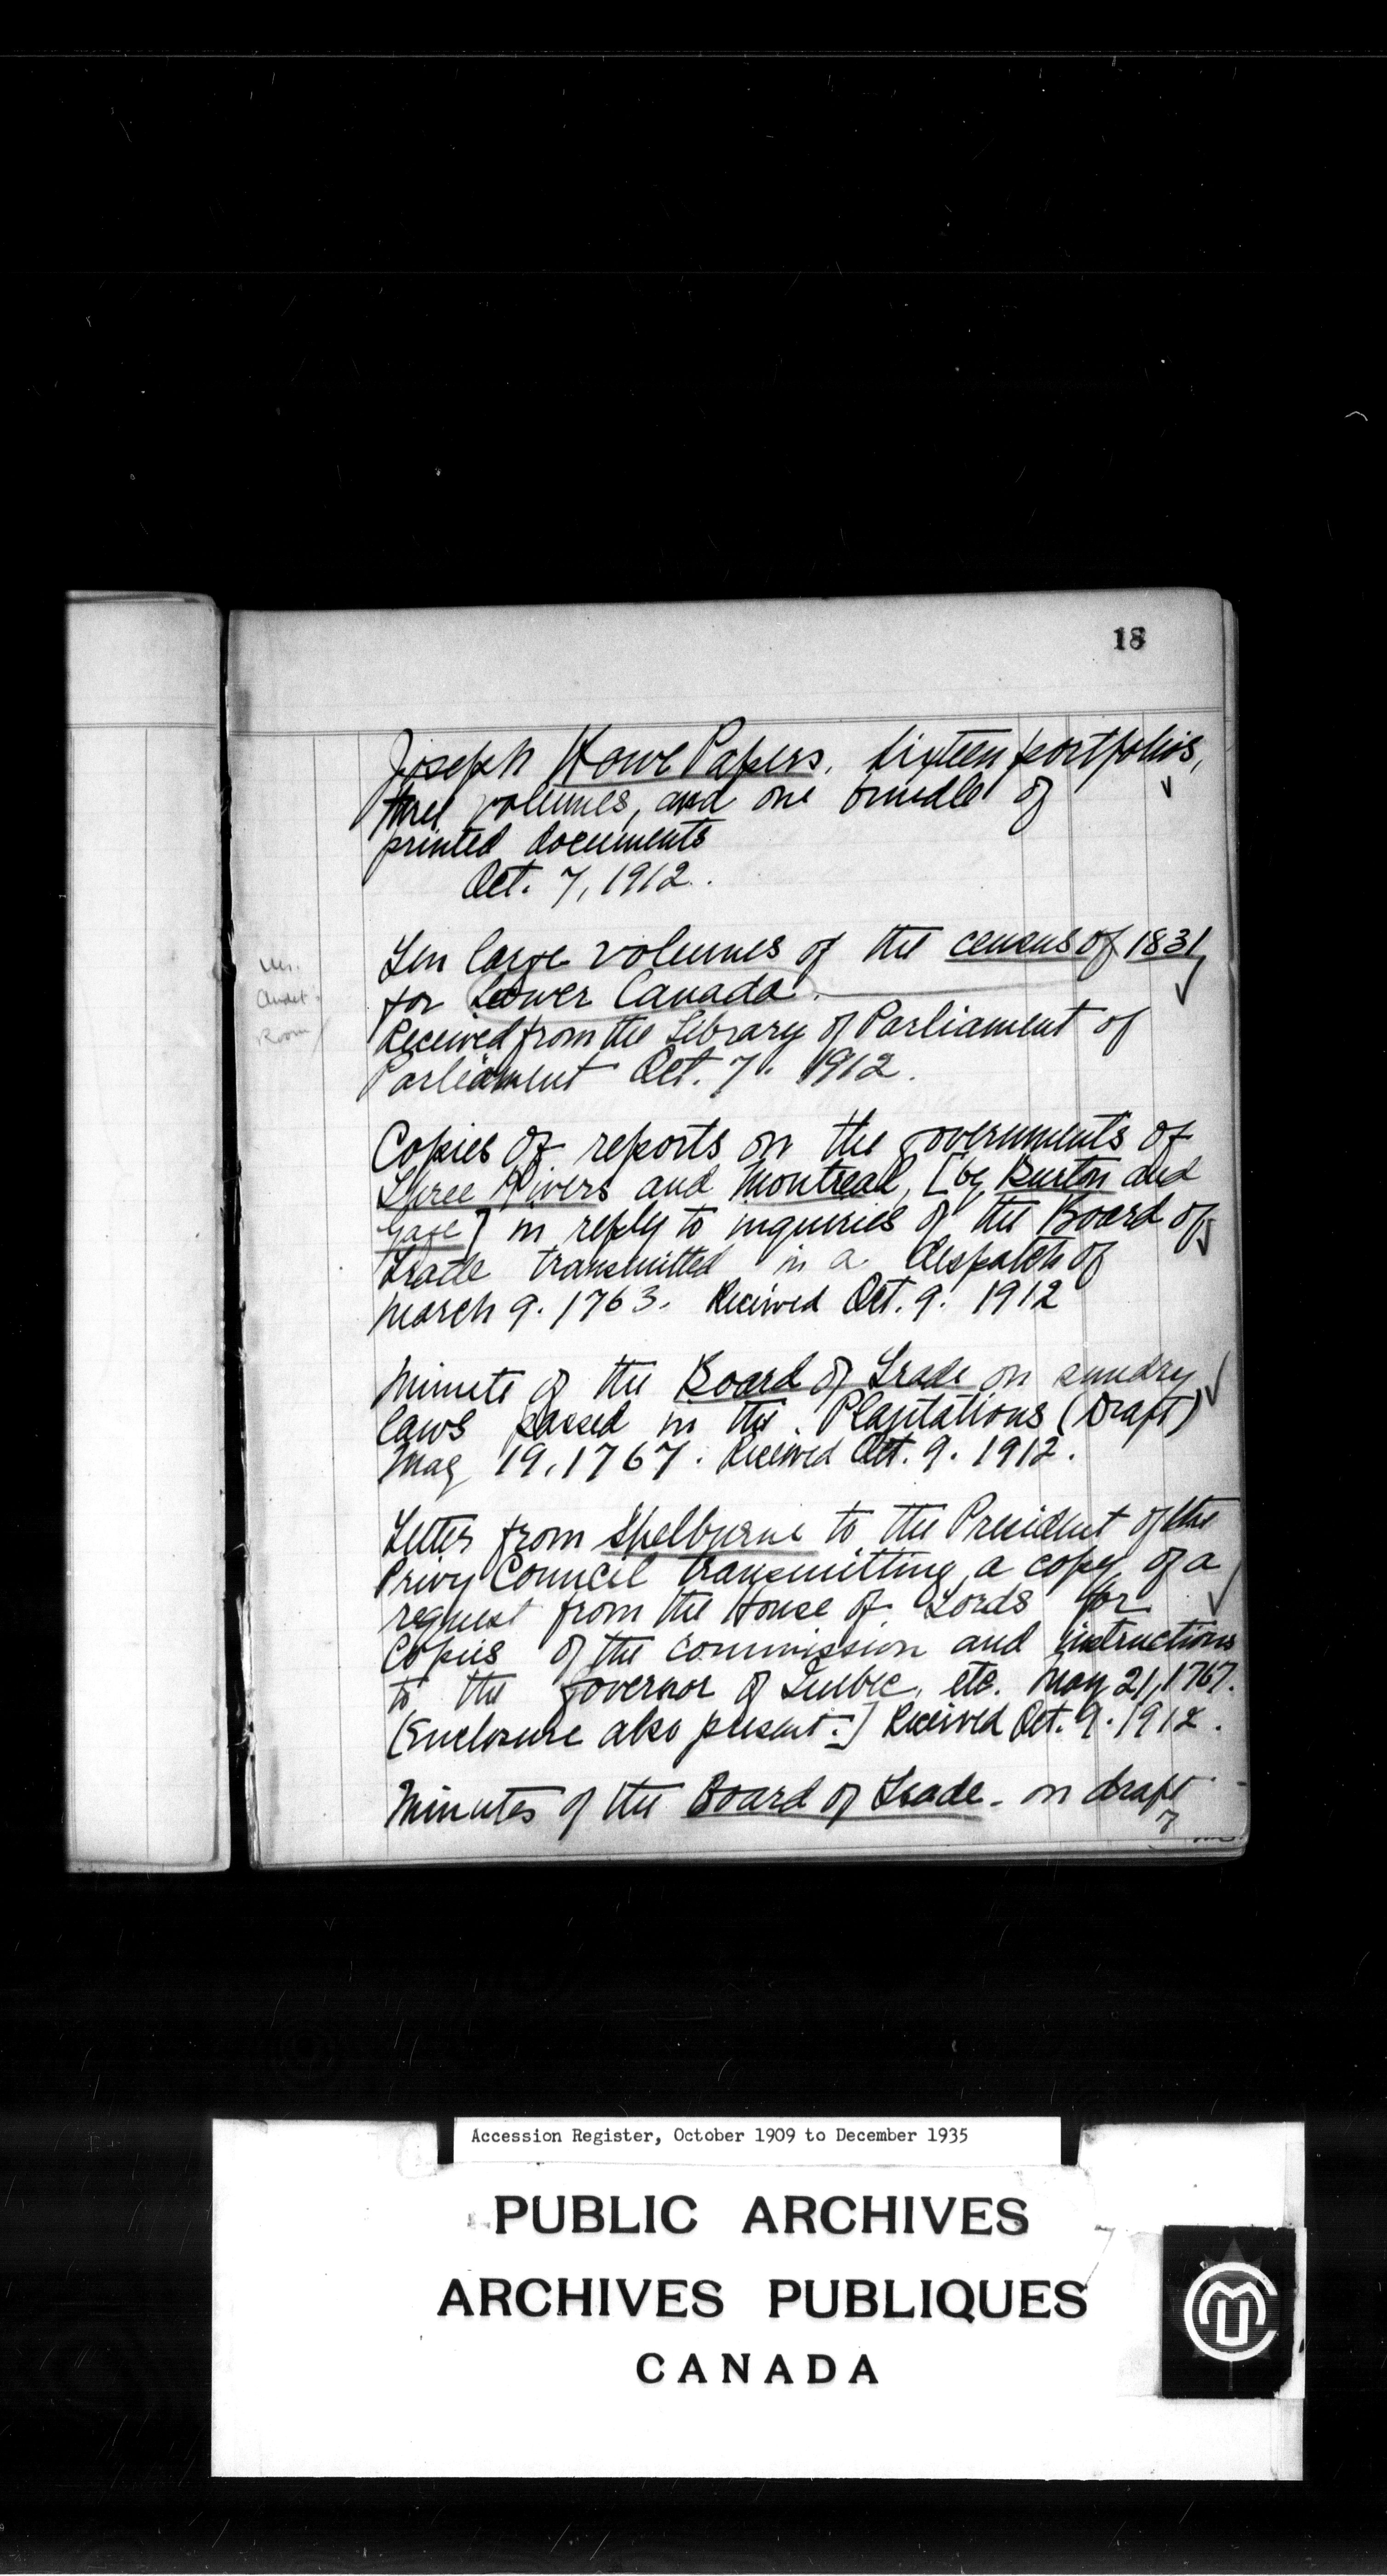 18
Joseph Howe Papers. Sixteen portfolios,
three volumes, and one bundle of
printed documents
Oct. 7, 1912.
Ten large volumes of the census of 1831
for Lower Canada.
Received from the Library of Parliament of
Parliament Oct. 7. 1912.
Copies of reports on the governments of
Three Rivers and Montreal, [by Burton and
Gage] in reply to inquiries of the Board of
Trade transmitted in a despatch of
March 9. 1763. Received Oct. 9. 1912
Minute of the Board of Trade on sundry
laws passed in the Plantations (Draft)
May 19, 1767. Received Oct. 9. 1912.
Letter from Shelburne to the President of the
Privy Council transmitting a copy of a
request from the House of Lords for
copies of the commission and instructions
to the governor of Quebec, etc. May 21, 1767.
(Enclosure also present.] Received Oct. 9. 1912.
Minutes of the Board of Trade - on draft
Room
Accession Register, October 1909 to December 1935
PUBLIC ARCHIVES
ARCHIVES PUBLIQUES
CANADA